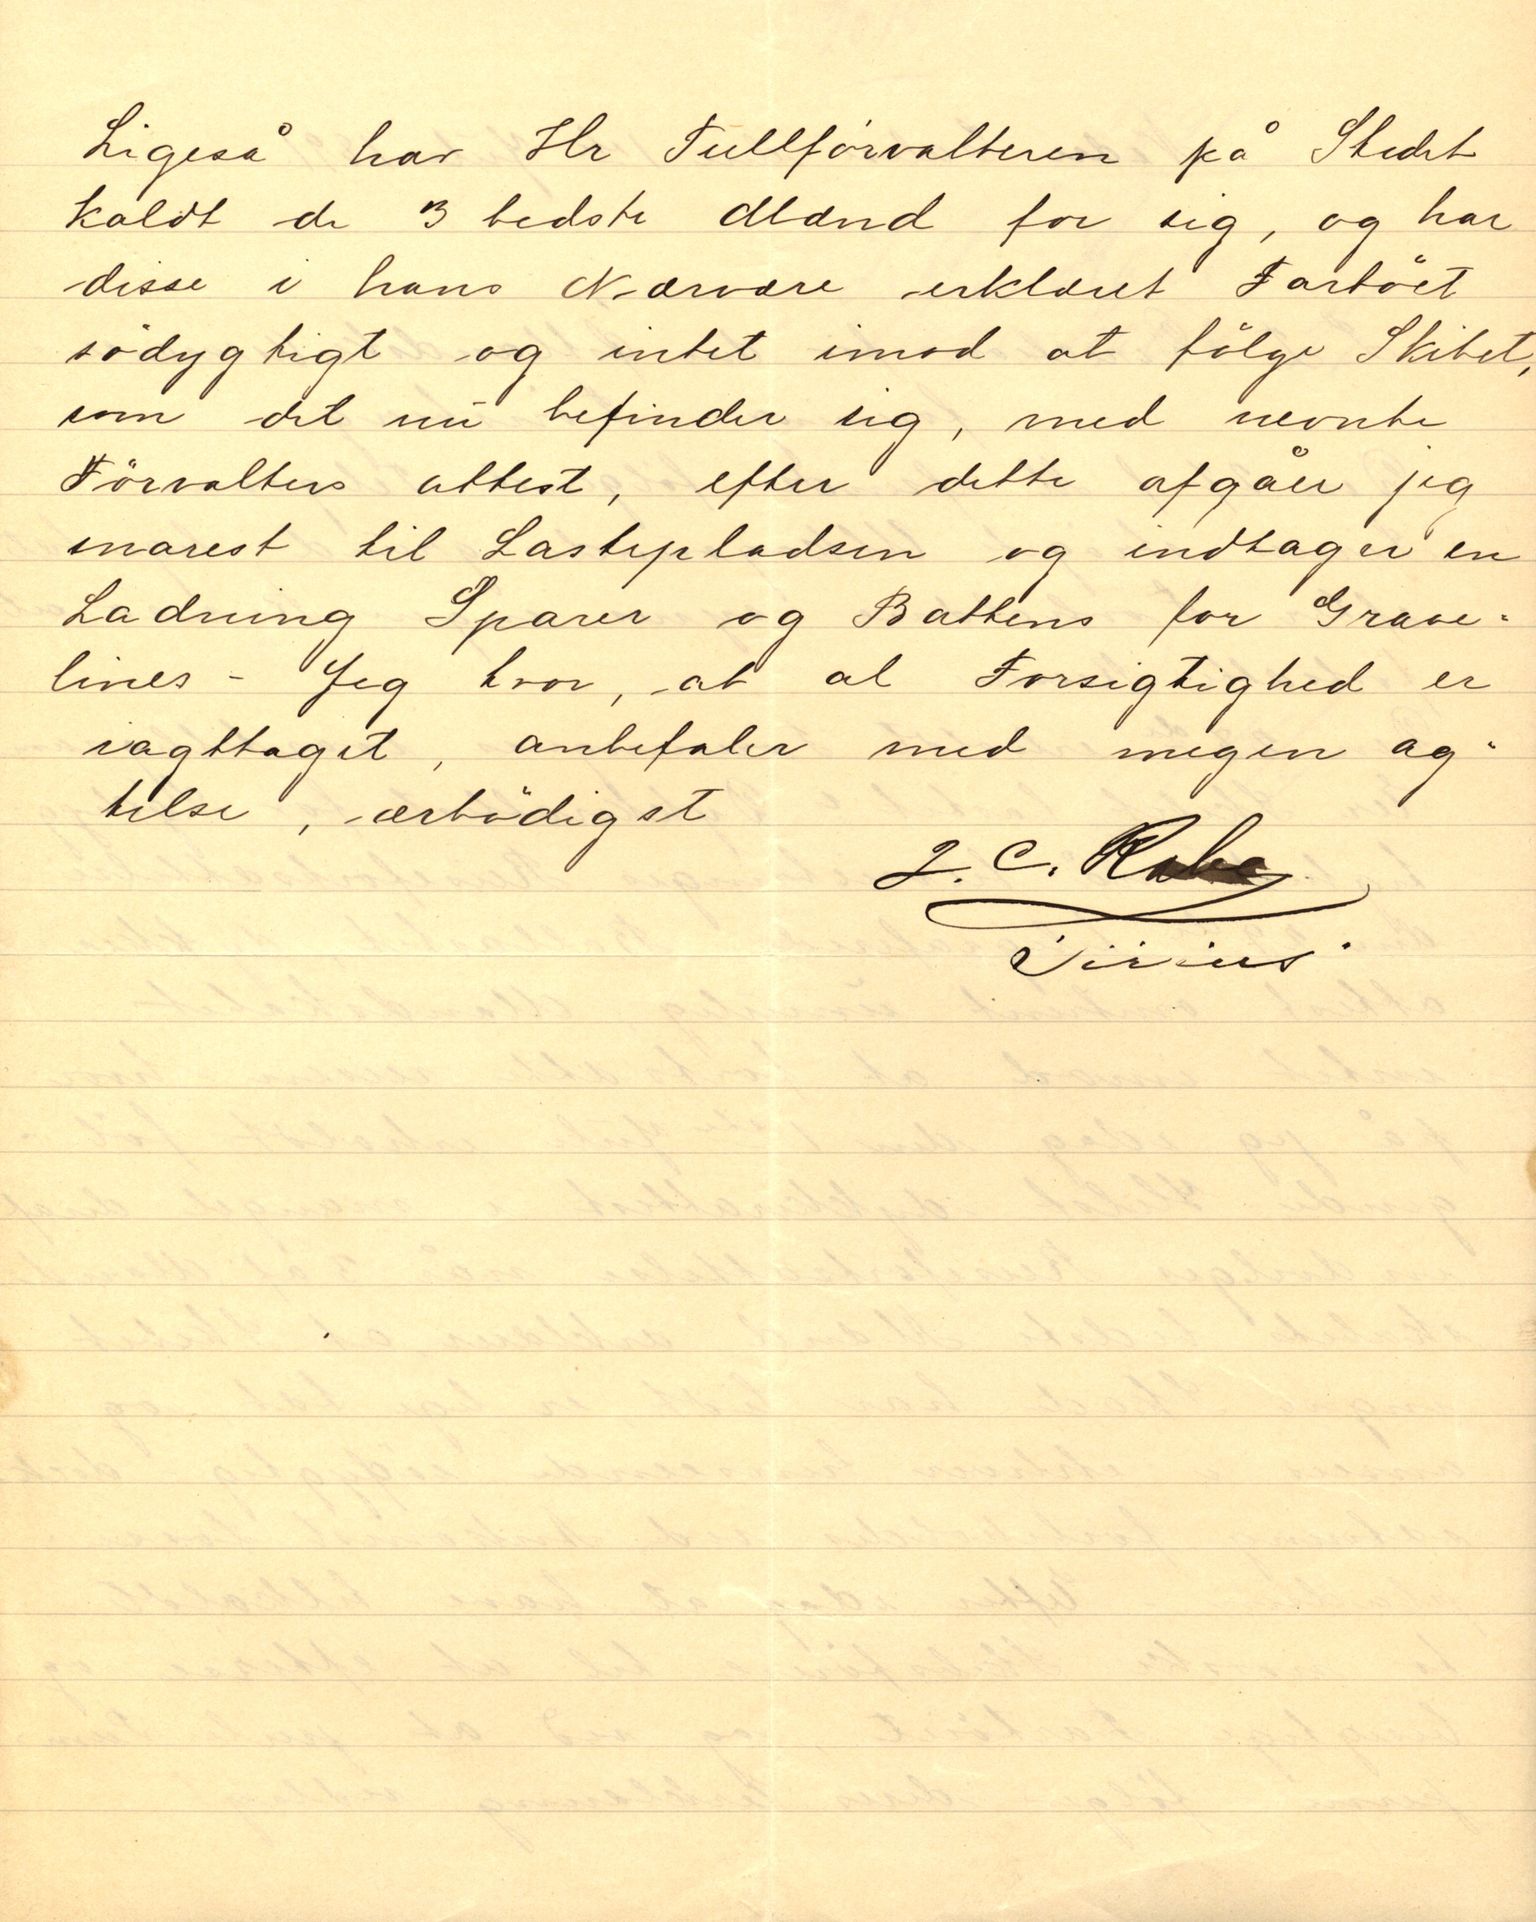 Ligeså har Hr Tullförvalteren på Stedet
kaldt de 3 bedste Mænd for sig, og har
disse i hans Nærvære erklæret Fartöet
södygtigt og intet imod at fölge Skibet,
som det nu befinder sig, med nevnte
Förvalters attest, efter dette afgåer jeg
snarest til Lastepladsen og indtager en
Ladning Sparer og Battens for Grave-
lines - Jeg tror, at al Forsigtighed er
iagttaget, anbefaler med megen ag-
telse, ærbödigst
J. C. Rabe
"Sirius"